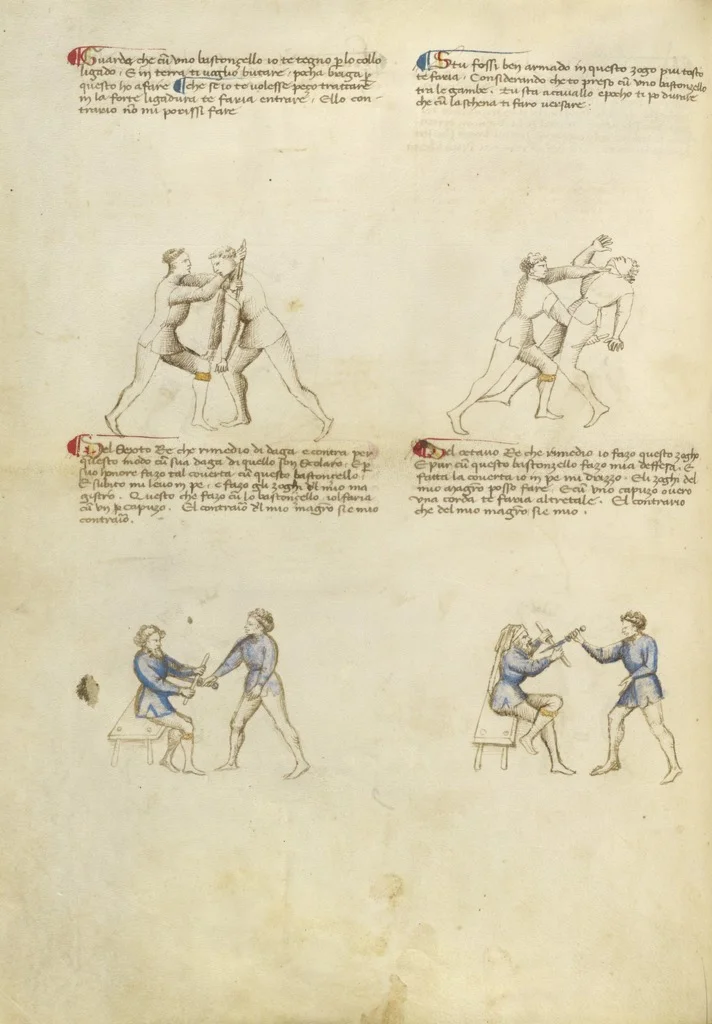 Guarda che cū uno bastoncello io te tegno p lo collo
ligado. E in terra ti voglio butare, pocha briga p
questo ho a fare. che se io te volesse peço trattare
in la forte ligadura te faria entrare, Ello con-
trario nō mi porissi fare.
Si tu fossi ben armado in questo zogo piu tosto
te faria. Considerando che to preso cū uno bastonzello
tra le gambe. tu sta a cavallo e pocho ti po durare
che cū la schena ti faro versare.
Del Sexto Re che rimedio di daga e contra per
questo modo cū sua daga di quello son Scolaro. E p
suo honore fazo tal coverta cū questo bastoncello.
E subito mi levo in pe, e fazo gli zoghi dl mio ma
gistro. Questo che fazo cū lo bastoncello, io l faria
cū un capuzo. El contraio dl mio magro si e mio
contraio.
Del octavo Re che rimedio io fazo questo zogho
E pur cū questo bastonzello fazo mia deffesa. E
fatta la coverta io in pe mi drizzo. E li zoghi del
mio magro posso fare. E cū uno capuzo overo
una corda te faria altretale. El contrario
che del mio magro si e mio.